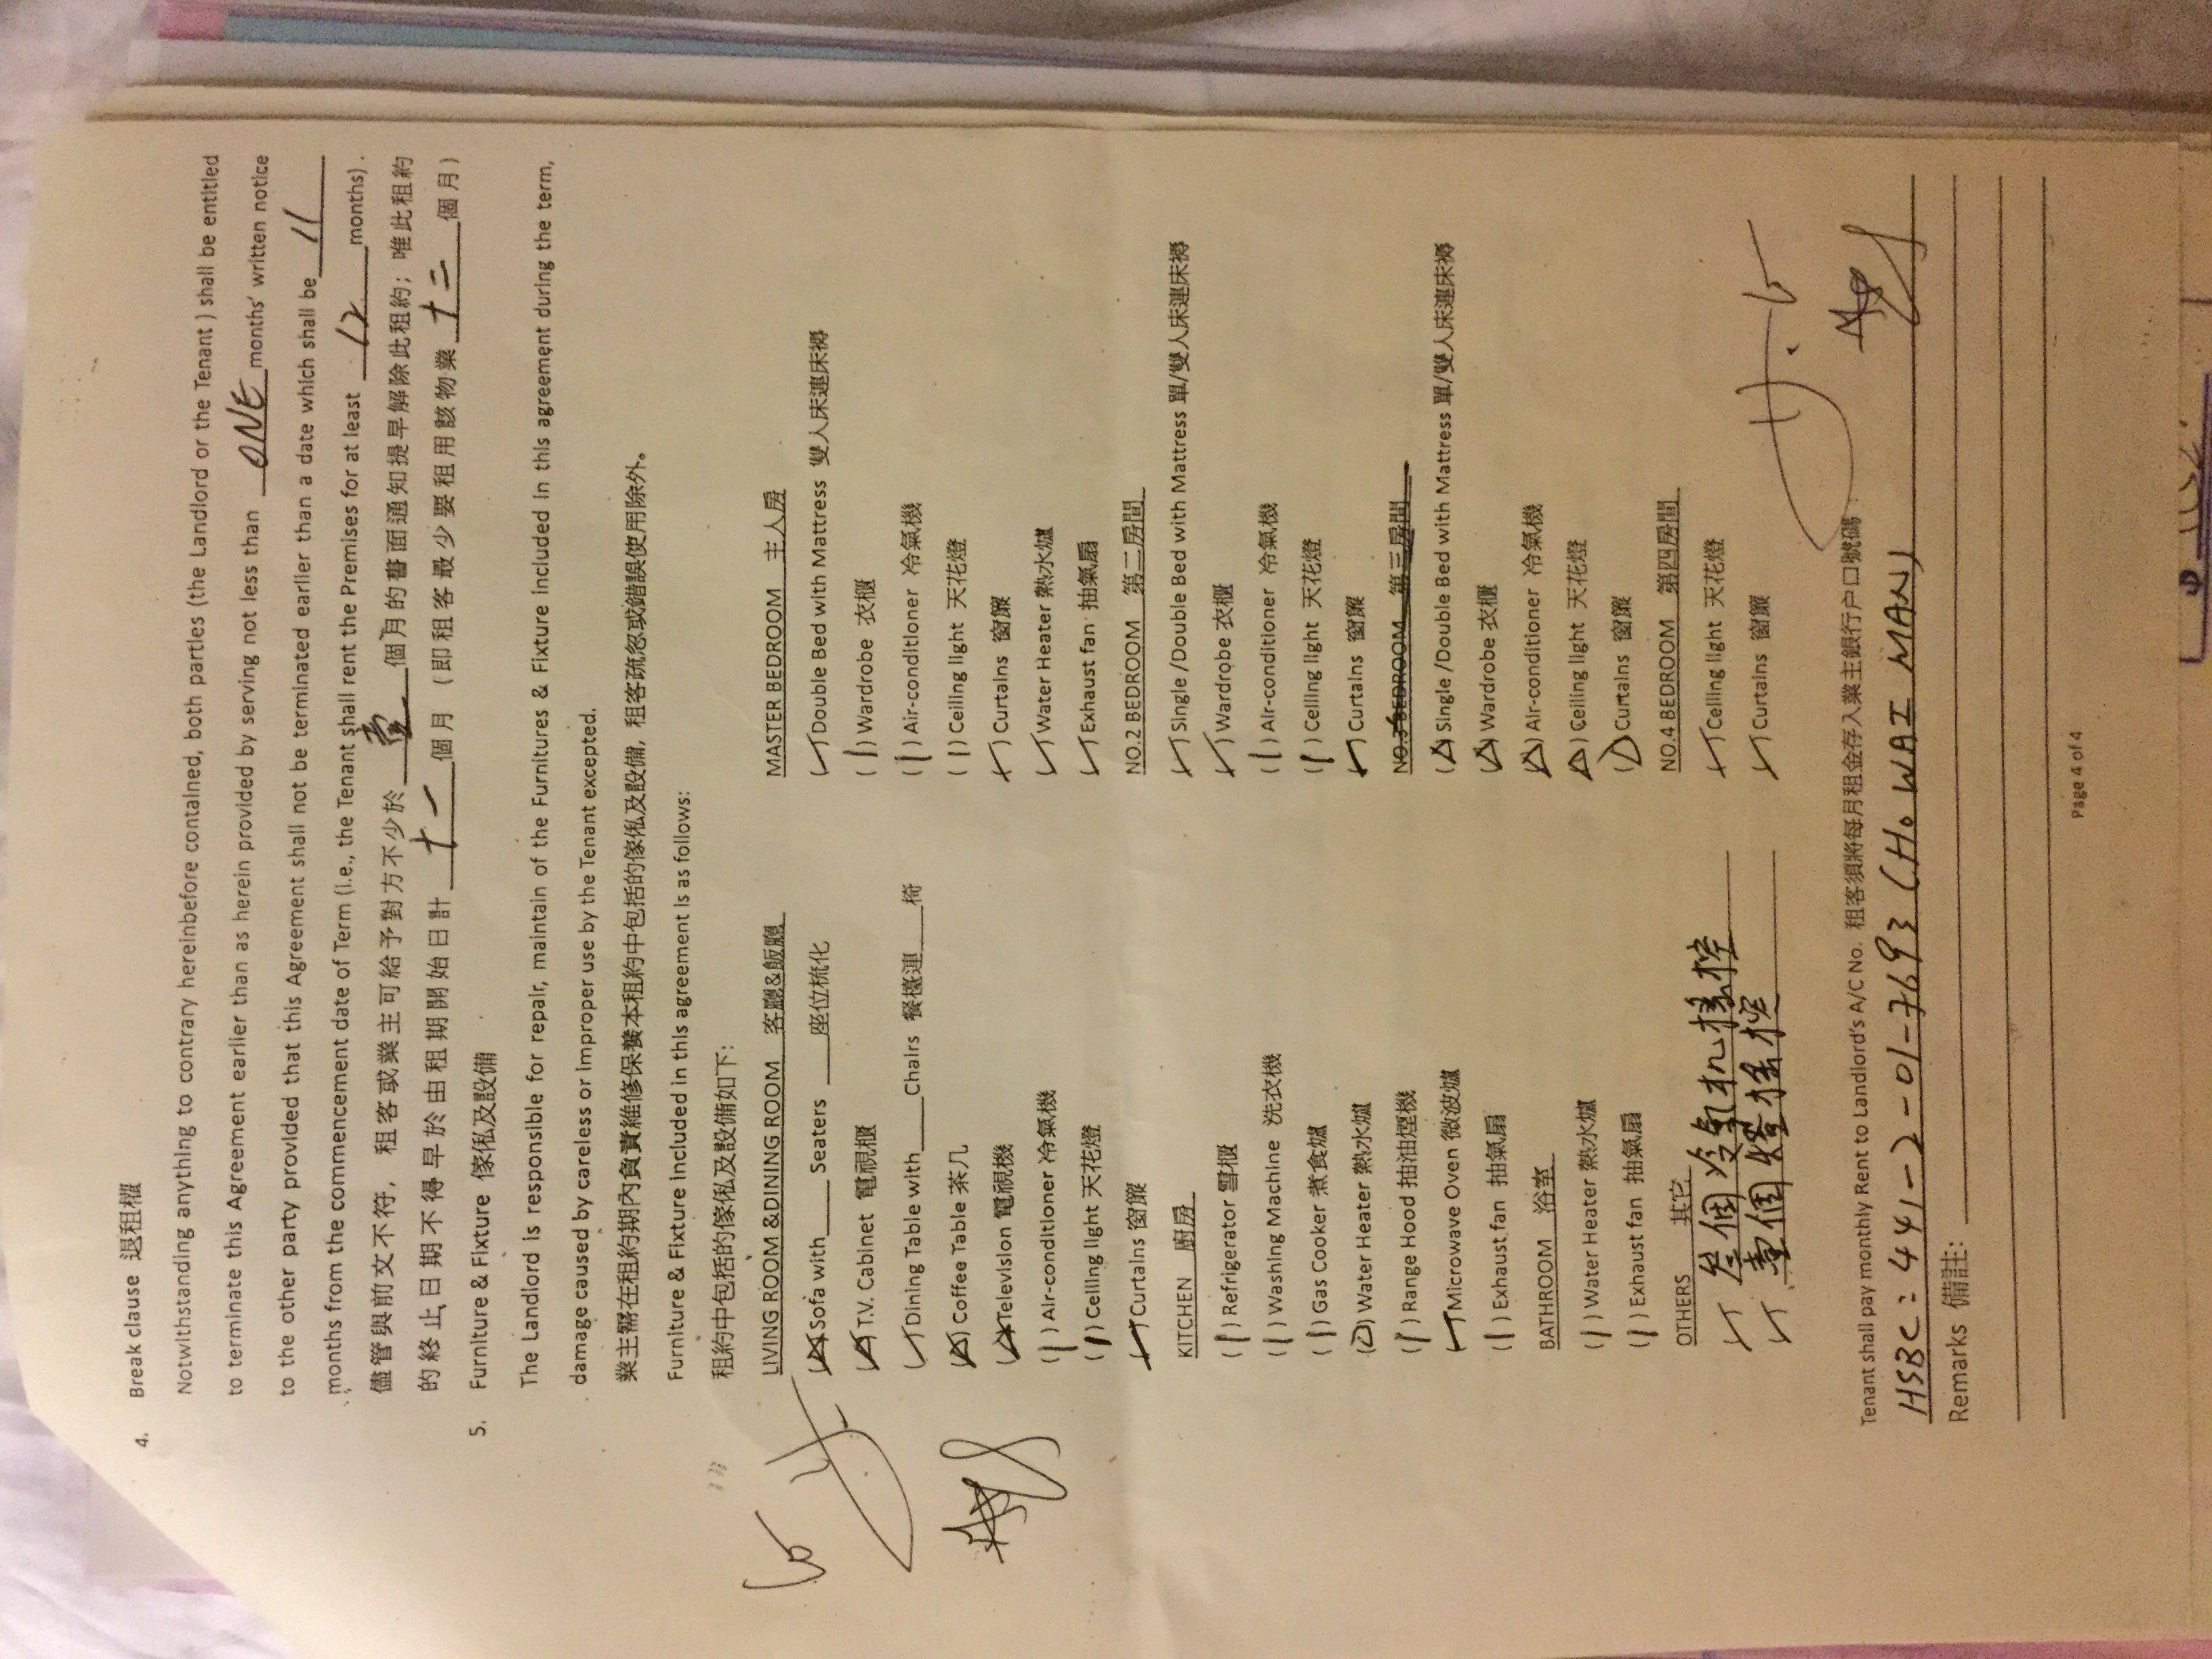 4. Break clause 退租權
Notwithstanding anything to contrary hereinbefore contained, both parties (the Landlord or the Tenant ) shall be entitled
to terminate this Agreement earlier than as herein provided by serving not less than ONE months' written notice
to the other party provided that this Agreement shall not be terminated earlier than a date which shall be 11
months from the commencement date of Term (i.e., the Tenant shall rent the Premises for at least 12 months).
儘管與前文不符，租客或業主可給予對方不少於 壹 個月的書面通知提早解除此租約；唯此租約
的終止日期不得早於由租期開始日計 十一 個月（即租客最少要租用該物業 十二 個月）
5. Furniture & Fixture 傢俬及設備
The Landlord is responsible for repair, maintain of the Furnitures & Fixture included in this agreement during the term,
damage caused by careless or improper use by the Tenant excepted.
業主需在租約期內負責維修保養本租約中包括的傢俬及設備，租客疏忽或錯誤使用除外。
Furniture & Fixture included in this agreement is as follows:
租約中包括的傢俬及設備如下：
LIVING ROOM &DINING ROOM 客廳&飯廳
Sofa with____ Seaters ____座位梳化
T.V. Cabinet 電視櫃
Dining Table with____Chairs 餐檯連____椅
Coffee Table 茶几
Television 電視機
( ) Air-conditioner 冷氣機
( ) Ceiling light 天花燈
Curtains 窗簾
KITCHEN 廚房
( ) Refrigerator 雪櫃
( ) Washing Machine 洗衣機
( ) Gas Cooker 煮食爐
( ) Water Heater 熱水爐
( ) Range Hood 抽油煙機
Microwave Oven 微波爐
( ) Exhaust fan 抽氣扇
BATHROOM 浴室
( ) Water Heater 熱水爐
( ) Exhaust fan 抽氣扇
OTHERS 其它
叁個冷氣机搖控
壹個燈搖控
MASTER BEDROOM 主人房
Double Bed with Mattress 雙人床連床褥
( ) Wardrobe 衣櫃
( ) Air-conditioner 冷氣機
( ) Ceiling light 天花燈
Curtains 窗簾
Water Heater 熱水爐
Exhaust fan 抽氣扇
NO.2 BEDROOM 第二房間
Single /Double Bed with Mattress 單/雙人床連床褥
Wardrobe 衣櫃
( ) Air-conditioner 冷氣機
( ) Ceiling light 天花燈
Curtains 窗簾
NO.3 BEDROOM 第三房間
Single /Double Bed with Mattress 單/雙人床連床褥
Wardrobe 衣櫃
Air-conditioner 冷氣機
Ceiling light 天花燈
Curtains 窗簾
NO.4 BEDROOM 第四房間
Ceiling light 天花燈
Curtains 窗簾
Tenant shall pay monthly Rent to Landlord's A/C No. 租客須將每月租金存入業主銀行戶口號碼:
HSBC: 441-2-01-7693 (HO WAI MAN)
Remarks 備註:
Page 4 of 4